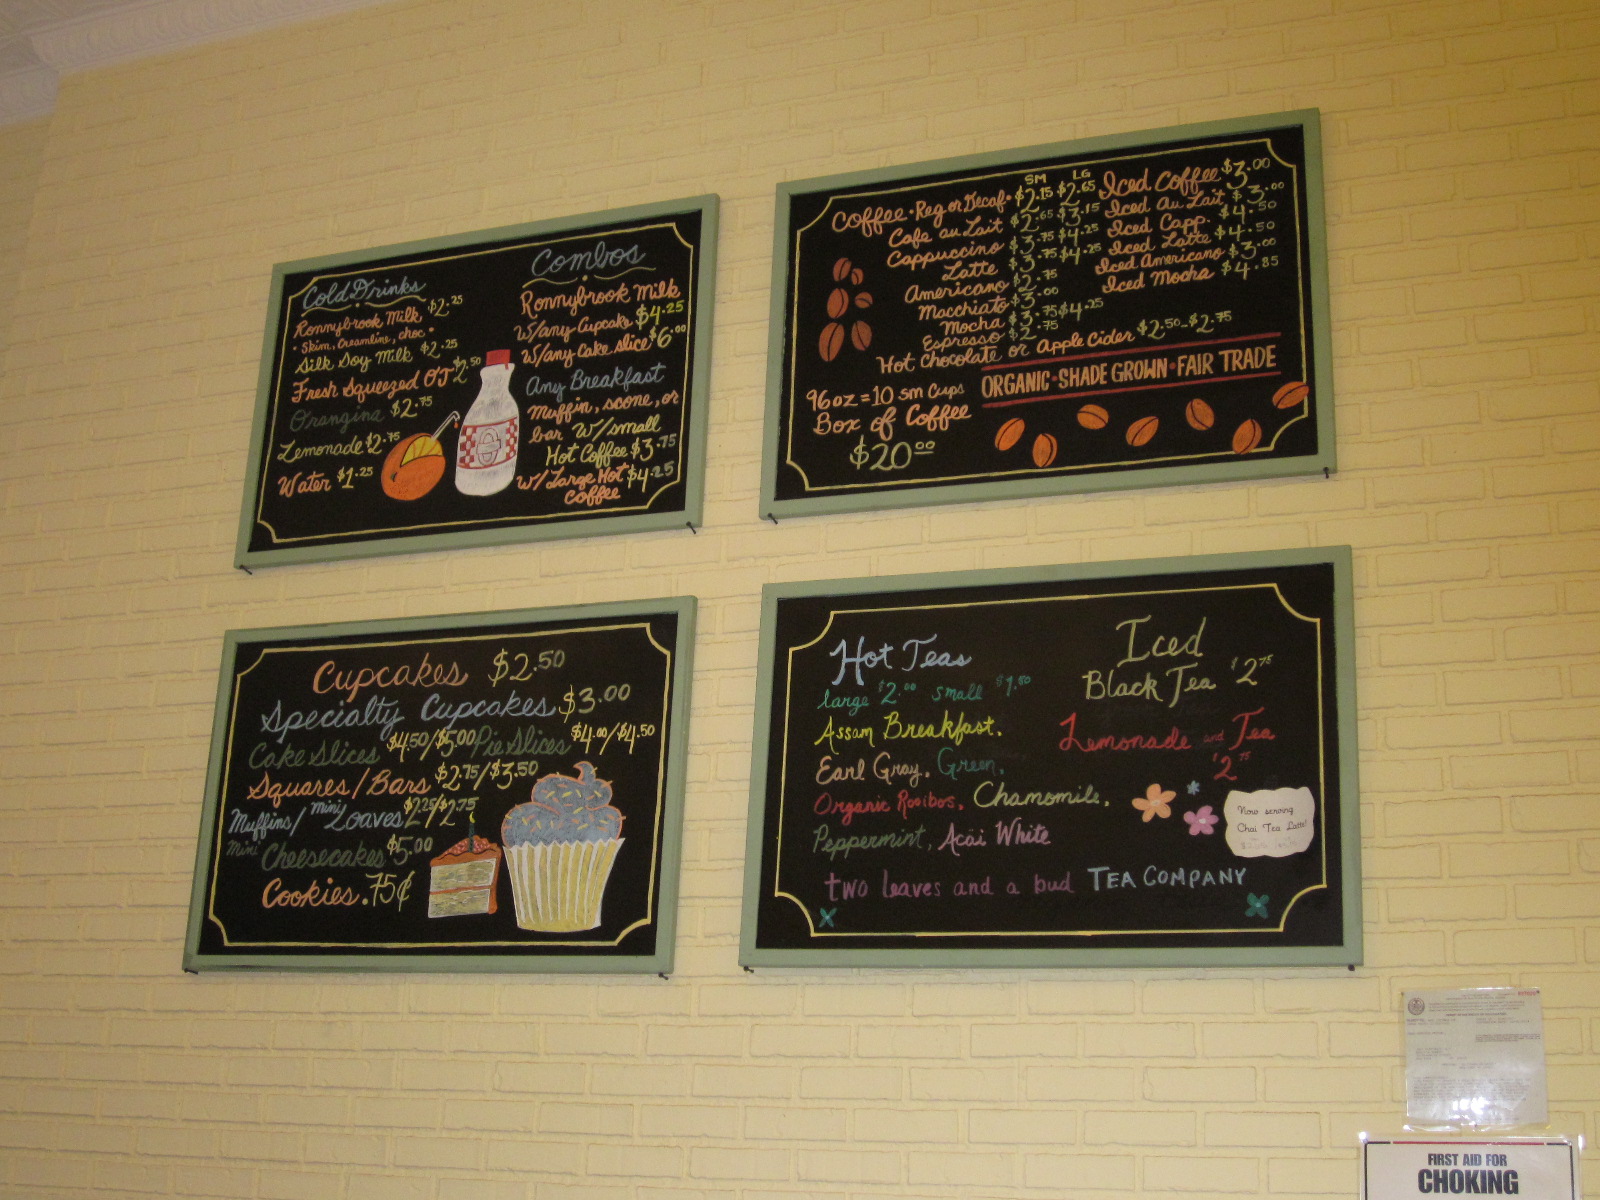 Cold Drinks
Ronnybrook Milk $2.25
• Skim, Creamline, choc •
Silk Soy Milk $2.25
Fresh Squeezed OJ $2.50
Orangina $2.75
Lemonade $2.75
Water $1.25
Combos
Ronnybrook Milk
w/any Cupcake $4.25
w/any Cake slice $6.00
Any Breakfast
Muffin, scone, or
bar w/small
Hot Coffee $3.75
w/Large Hot $4.25
Coffee
SM LG
Coffee • Reg or Decaf • $2.15 $2.65
Cafe au Lait $2.65 $3.15
Cappuccino $3.75 $4.25
Latte $3.75 $4.25
Americano $2.75
Macchiato $3.00
Mocha $3.75 $4.25
Espresso $2.75
Hot Chocolate or Apple Cider $2.50-$2.75
Iced Coffee $3.00
Iced Au Lait $3.00
Iced Capp. $4.50
Iced Latte $4.50
Iced Americano $3.00
Iced Mocha $4.85
ORGANIC • SHADE GROWN • FAIR TRADE
96oz = 10 sm Cups
Box of Coffee
$20.00
Cupcakes $2.50
Specialty Cupcakes $3.00
Cake Slices $4.50/$5.00 Pie Slices $4.00/$4.50
Squares/Bars $2.75/$3.50
Muffins/mini Loaves $2.25/$2.75
Mini Cheesecakes $5.00
Cookies .75¢
Hot Teas
large $2.00 small $1.80
Assam Breakfast,
Earl Gray, Green,
Organic Rooibos, Chamomile,
Peppermint, Acai White
two leaves and a bud TEA COMPANY
Iced
Black Tea $2.75
Lemonade and Tea
$2.75
Now serving
Chai Tea Latte!
FIRST AID FOR
CHOKING